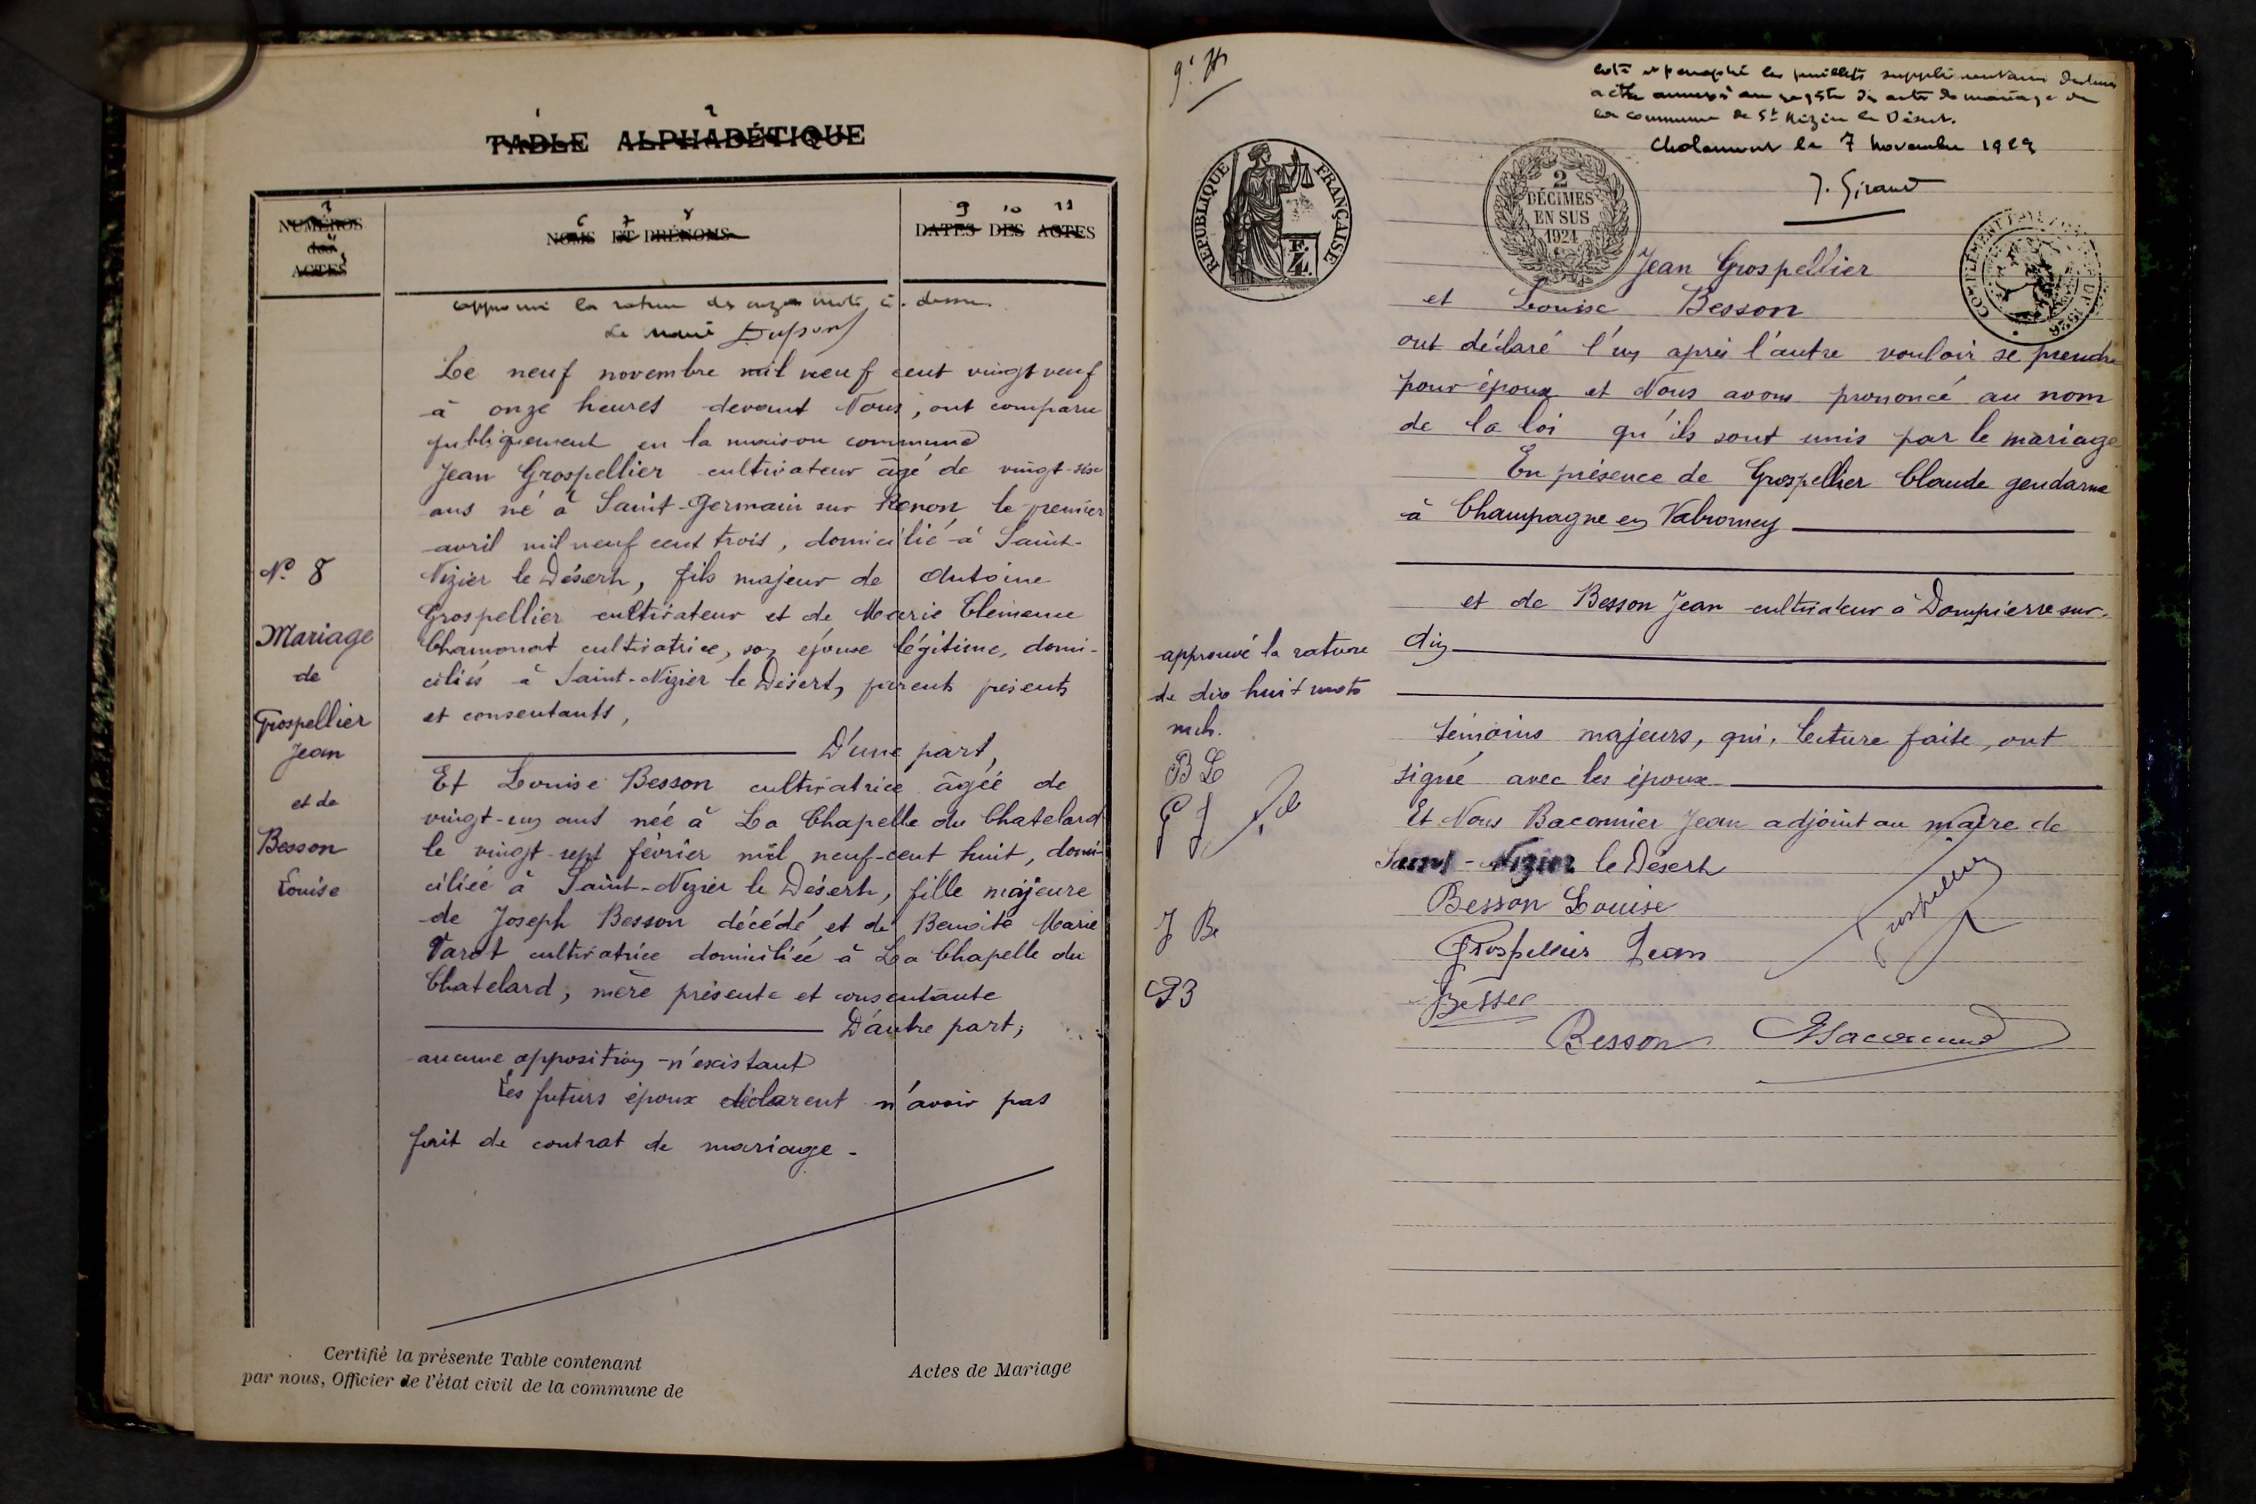 1 2
TABLE ALPHABÉTIQUE
3
NUMÉROS
4
des
5
ACTES
6 7 8
NOMS ET PRÉNOMS
9 10 11
DATES DES ACTES
approuvé la rature des onze mots ci-dessus.
Le maire Dupont
Le neuf novembre mil neuf cent vingt neuf
à onze heures devant Nous, ont comparu
publiquement en la maison commune
Jean Grospellier cultivateur âgé de vingt-six
ans né à Saint-Germain sur Renon le premier
avril mil neuf cent trois, domicilié à Saint-
Nizier le Désert, fils majeur de Antoine
Grospellier cultivateur et de Marie Clémence
Chamonat cultivatrice, son épouse légitime, domi-
ciliés à Saint-Nizier le Désert, parents présents
et consentants,
D'une part,
Et Louise Besson cultivatrice âgée de
vingt-un ans née à La Chapelle du Chatelard
le vingt-sept février mil neuf-cent huit, domi-
ciliée à Saint-Nizier le Désert, fille majeure
de Joseph Besson décédé, et de Benoite Marie
cultivatrice domiciliée à La Chapelle du
Chatelard, mère présente et consentante
D'autre part;
aucune opposition n'existant
Les futurs époux déclarent n'avoir pas
fait de contrat de mariage -
N° 8
Mariage
de
Grospellier
Jean
et de
Besson
Louise
Certifié la présente Table contenant
par nous, Officier de l'état civil de la commune de
Actes de Mariage
coté et paraphé les feuillets supplémentaires
acte annexé au registre des actes de mariage de
la commune de St Nizier le Désert.
Chalamont le 7 novembre 1929
J. Giraud
RÉPUBLIQUE FRANÇAISE
2
DÉCIMES
EN SUS
1924
COMPLÉMENT DE 1926
Jean Grospellier
et Louise Besson
ont déclaré l'un après l'autre vouloir se prendre
pour époux et Nous avons prononcé au nom
de la loi qu'ils sont unis par le mariage
En présence de Grospellier Claude gendarme
à Champagne en Valromey
et de Besson Jean cultivateur à Dompierre sur
témoins majeurs, qui, lecture faite, ont
signé avec les époux
Et Nous Baconnier Jean adjoint au maire de
Saint-Nizier le Désert
approuvé la rature
de dix huit mots
nuls.
B L
G J
J B
Besson Louise
Grospellier Jean
Grospellier
Besson